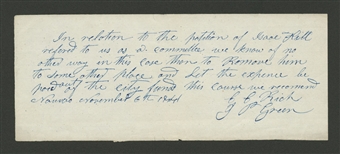 In relation to the petition of Isaac Hill
referd to us as a committee we know of no
other way in this case then to Remove him
to some other place and Let the expence be
paid out of the city funds this course we recomend
Nauvoo November 6th 1844
C C Rich
Green